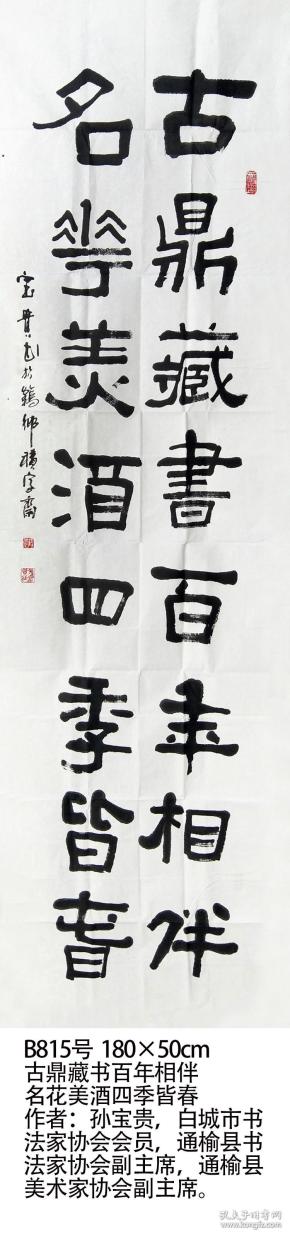 古鼎藏書百年相伴
名花美酒四季皆春
B815号 180×50cm
古鼎藏书百年相伴
名花美酒四季皆春
作者：孙宝贵，白城市书
法家协会会员，通榆县书
法家协会副主席，通榆县
美术家协会副主席。